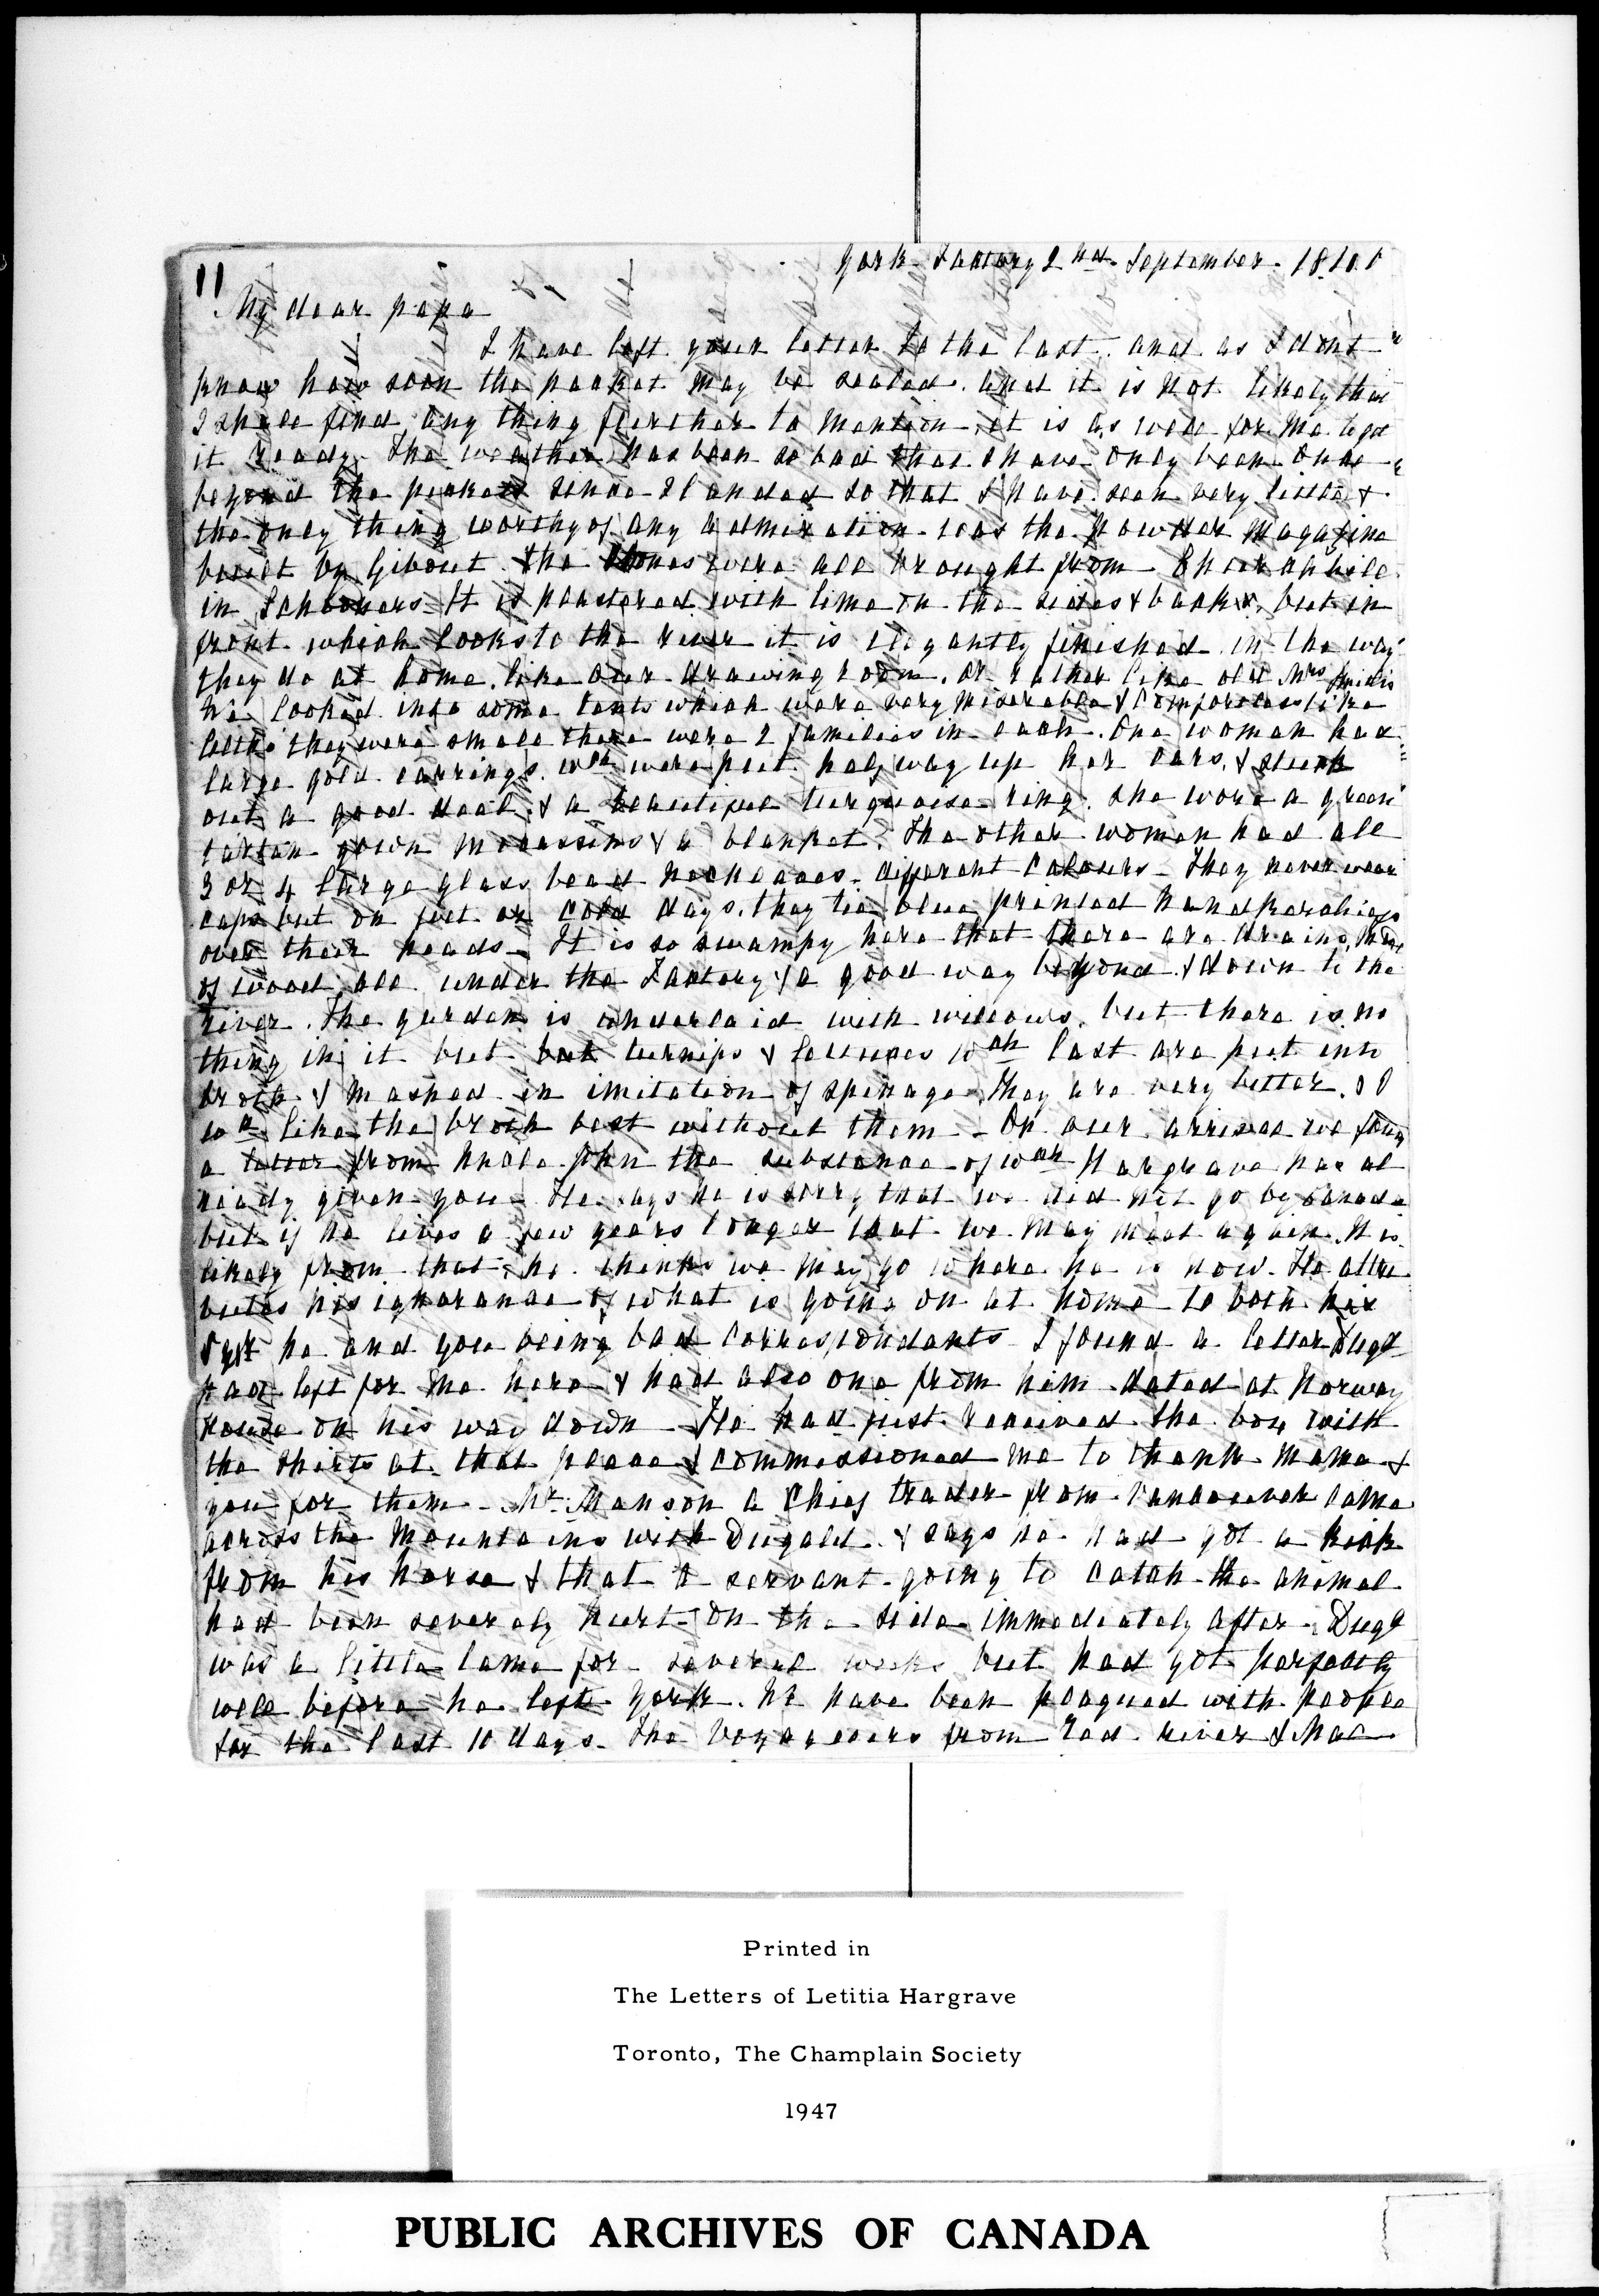 11
York Factory 2nd September 1840
My dear papa
I have left your letter to the last and as I dont
know how soon the packet may be sealed and it is not likely that
I shall find any thing further to mention, it is as well for me to get
it ready. The weather has been so bad that I have only been once
beyond the pickets since I landed so that I have seen very little &
the only thing worthy of any admiration was the powder magazine
built by Gibout. The stones were all brought from Churchhill
in Schooners It is plastered with lime on the sides & back, but in
front which looks to the river it is elegantly finished in the way
they do at home, like our drawing room, or rather like old Mrs
We looked into some tents which were very miserable & comfortless like
altho they were small there were 2 families in each. One woman had
large gold earrings wch were put half way up her ears, & stuck
out a good deal, & a beautiful turquoise ring. She wore a green
tartan gown mocassins & a blanket. The other women had all
3 or 4 large glass bead necklaces different colours - They never wear
caps but on wet or cold days they tie blue printed handkerchiefs
over their heads - It is so swampy here that there are drains, made
of wood all under the Factory & a good way beyond & down to the
river. The garden is underlaid with willows, but there is no
thing in it but but turnips & lettuces wch last are put into
broth & mashed in imitation of spinage They are very bitter. & I
wd like the broth best without them - On our arrival we found
a letter from Uncle John the substance of wch Hargrave has al
ready given you - He says he is sorry that we did not go by Canada
but if he lives a few years longer that we may meet again. It is
likely from that, he thinks we may go where he is now. He attri
butes his ignorance of what is going on at home to both his
Sysr he and you being bad correspondants I found a letter Dugd
had left for me here & had also one from him dated at Norway
House on his way down - He had just received the box with
the shirts at that place & commissioned me to thank Mama &
you for them - Mr Manson a Chief trader from Vancouver came
across the Mountains with Dugald & says he had got a kick
from his horse & that a servant going to catch the animal
had been severely hurt on the side immediately after. Dugd
was a little lame for several weeks but had got perfectly
well before he left York. We have been plagued with people
for the last 10 days. The Voyageurs from Red river & Mac
Printed in
The Letters of Letitia Hargrave
Toronto, The Champlain Society
1947
PUBLIC ARCHIVES OF CANADA